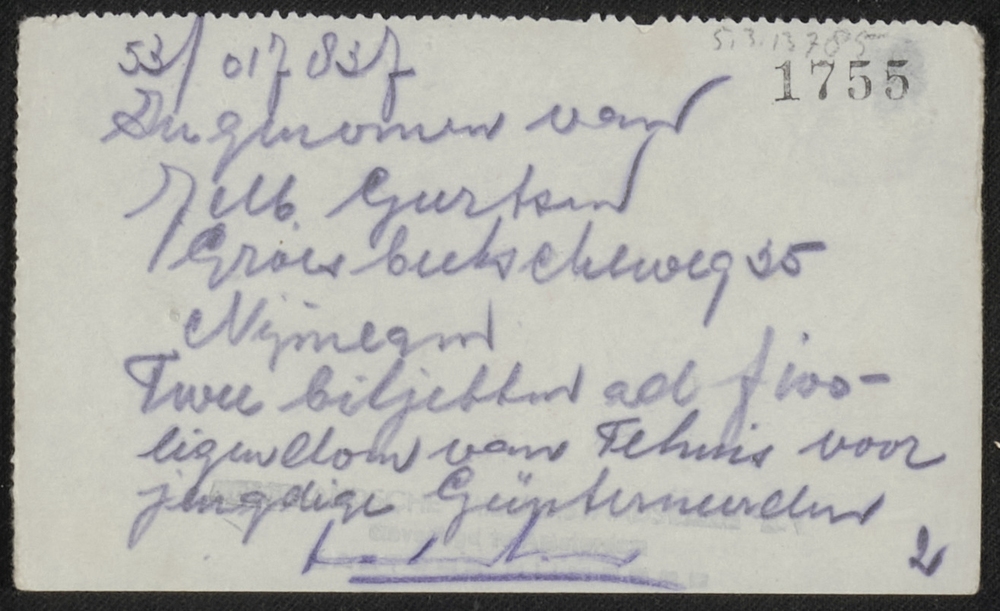 53/ 017837
5.3.13785
1755
Ingenomen van
Geurtsen
Groesbeekscheweg 35
Nijmegen
Twee biljetten ad f 100-
eigendom van Tehuis voor
jeugdige
2